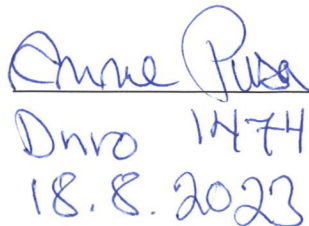 Anne Pusa
Dnro 1474
18.8.2023